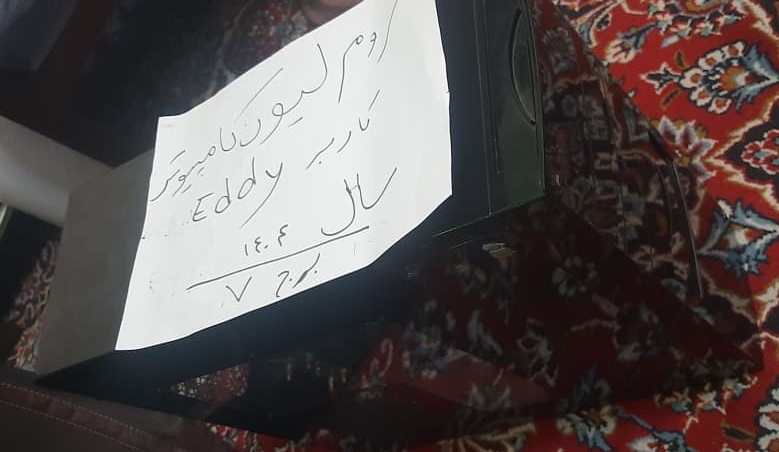 روم لیون کامپیوتر
کاربر Eddy
سال ۱۴۰۴
برج ۷